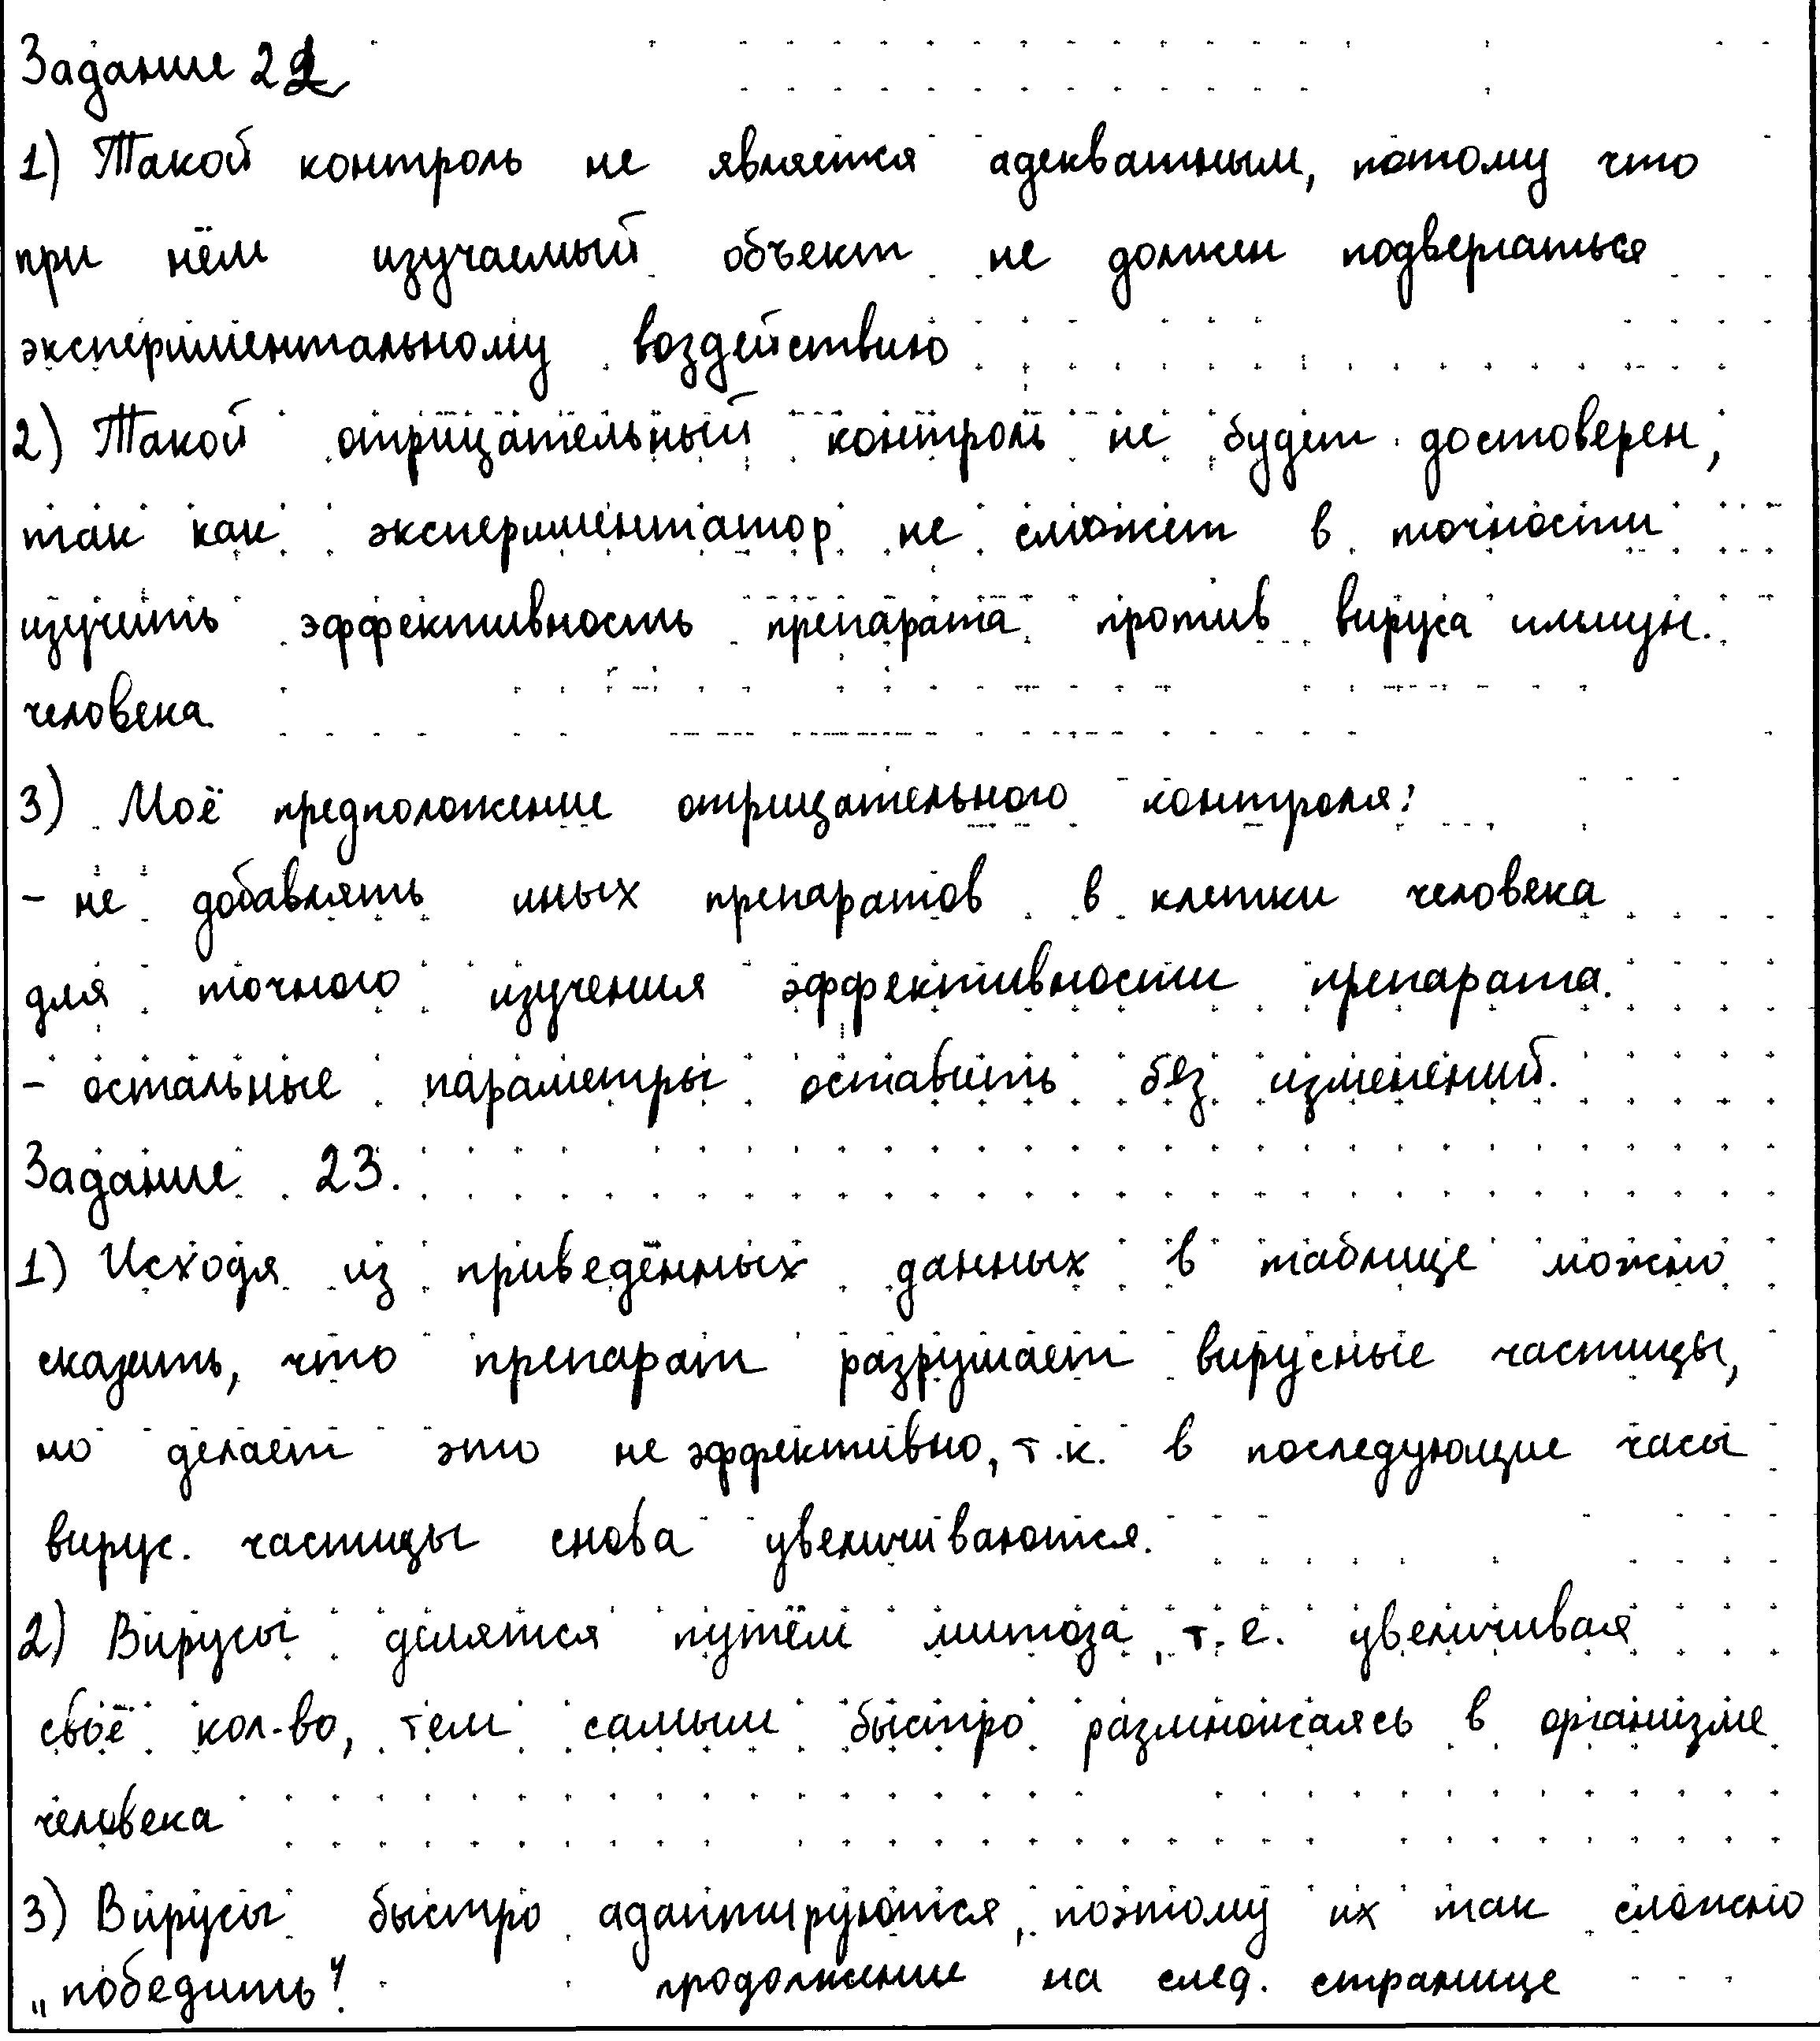 Задание 22
1) Такой контроль не является адекватным, потому что
при нём изучаемый объект не должен подвергаться
экспериментальному воздействию
2) Такой отрицательный контроль не будет достоверен,
так как экспериментатор не сможет в точности
изучить эффективность препарата против вируса иммун.
человека
3) Моё предположение отрицательного контроля:
- не добавлять иных препаратов в клетки человека
для точного изучения эффективности препарата.
- остальные параметры оставить без изменений.
Задание 23.
1) Исходя из приведённых данных в таблице можно
сказать, что препарат разрушает вирусные частицы,
но делает это не эффективно, т.к. в последующие часы
вирус. частицы снова увеличиваются.
2) Вирусы делятся путём митоза, т.е. увеличивая
своё кол-во, тем самым быстро размножаясь в организме
человека
3) Вирусы быстро адаптируются, поэтому их так сложно
„победить". продолжение на след. странице